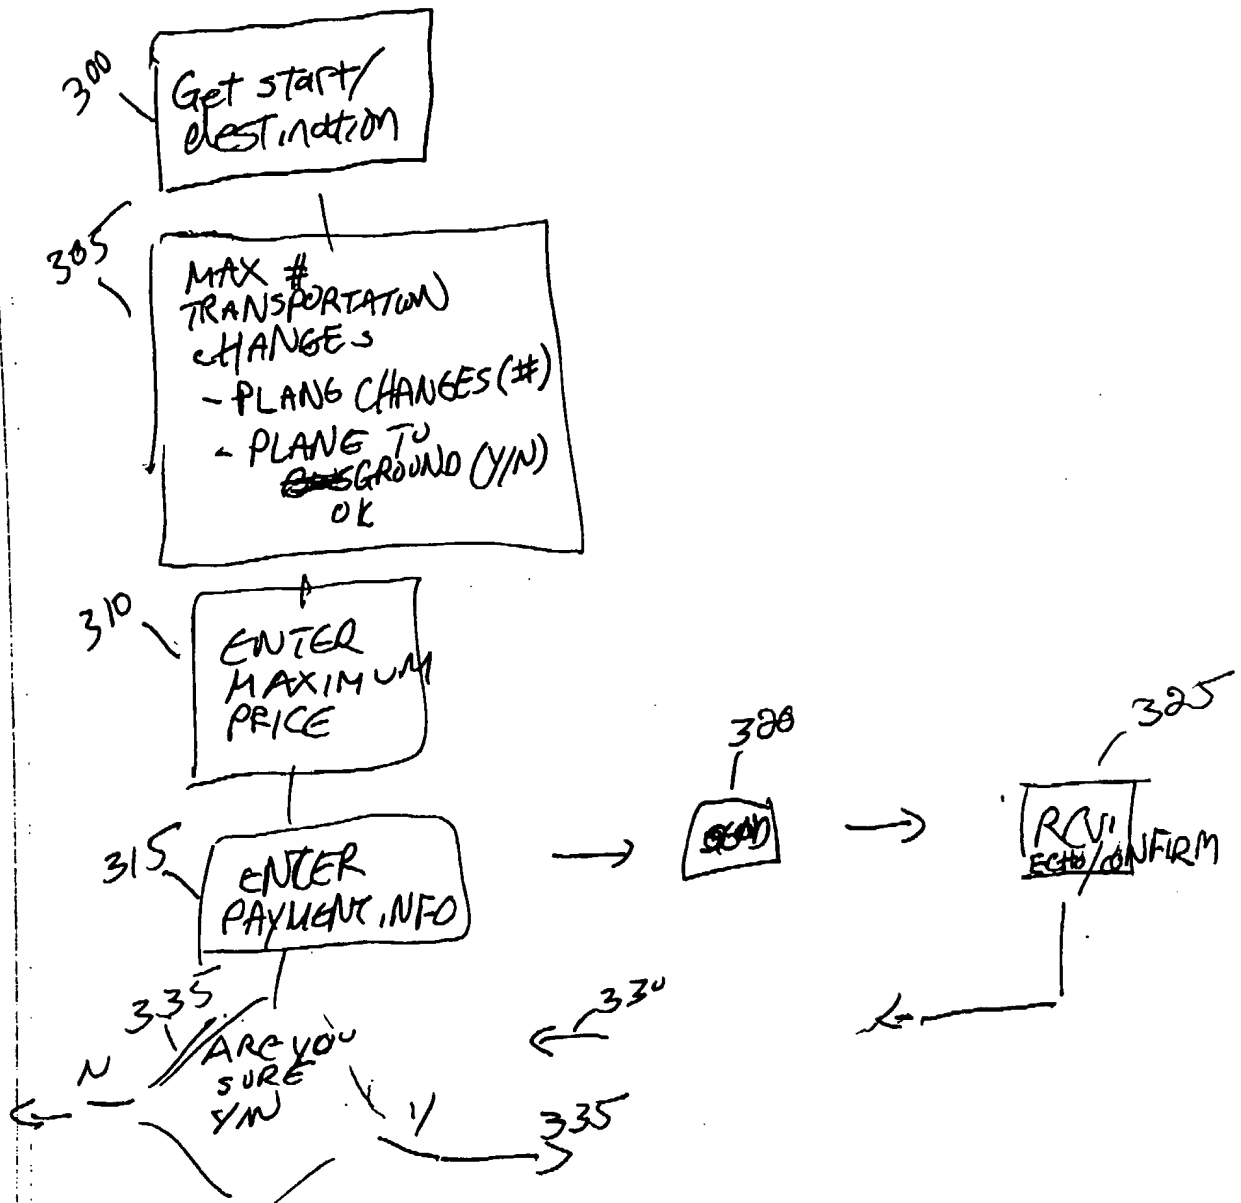 300
Get start/
destination
305
MAX #
TRANSPORTATION
CHANGES
- PLANE CHANGES (#)
- PLANE TO
GROUND (Y/N)
OK
310
ENTER
MAXIMUM
PRICE
315
ENTER
PAYMENT INFO
320
SEND
325
RCV
ECHO/CONFIRM
330
335
ARE YOU
SURE
Y/N
N
Y
335